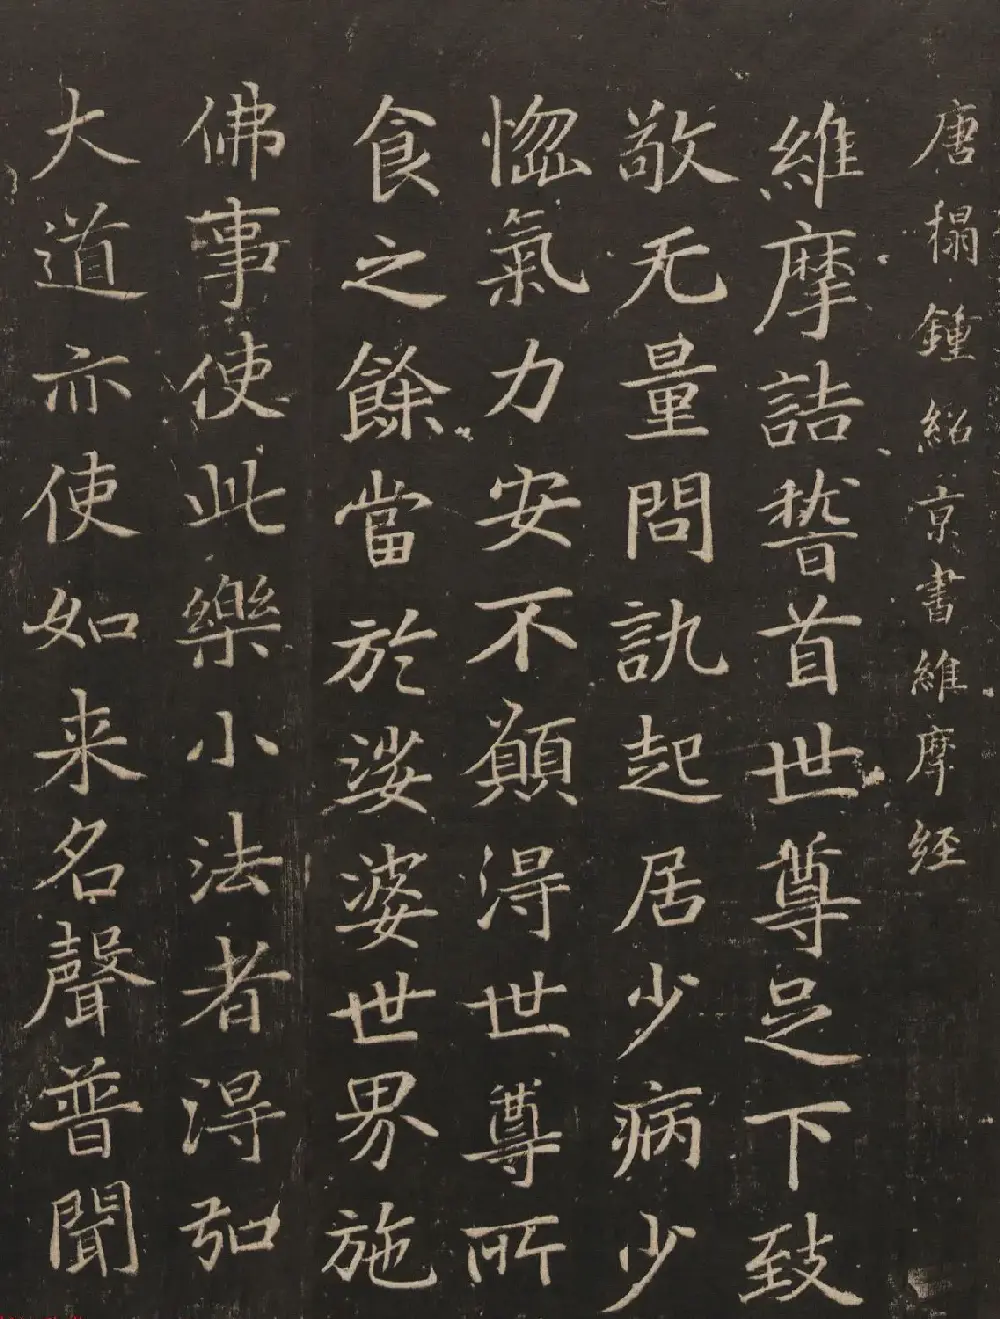 唐榻鍾紹京書維摩経
維摩詰稽首世尊足下致
敬无量問訊起居少病少
惱氣力安不願得世尊所
食之餘當於娑婆世界施
佛事使此樂小法者得弘
大道亦使如来名聲普聞